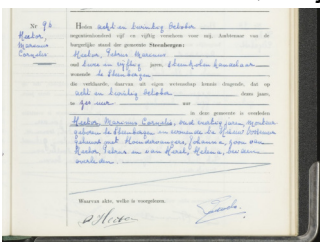 Nr 96.
Hector,
Marinus
Cornelis
Heden acht en twintig October
negentienhonderd vijf en vijftig verscheen voor mij, Ambtenaar van de
burgerlijke stand der gemeente Steenbergen:
Hector, Petrus Marinus
oud twee en vijftig jaren,
wonende te Steenbergen
die verklaarde, daarvan uit eigen wetenschap kennis dragende, dat op
acht en twintig October dezes jaars,
te uur
in deze gemeente is overleden
Hector Marinus Cornelis, oud twintig jaren,
geboren te Steenbergen en wonende te
gehuwd met Johanna, zoon van
Hector, Petrus en van Helena,
overleden.
Waarvan akte, welke is voorgelezen.
P. Hector